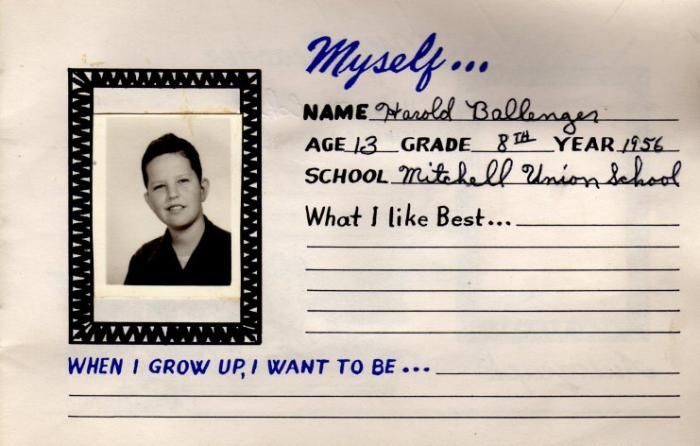 Myself...
NAME Harold Ballenger
AGE 13 GRADE 8TH YEAR 1956
SCHOOL Mitchell Union School
What I like Best...
WHEN I GROW UP, I WANT TO BE...